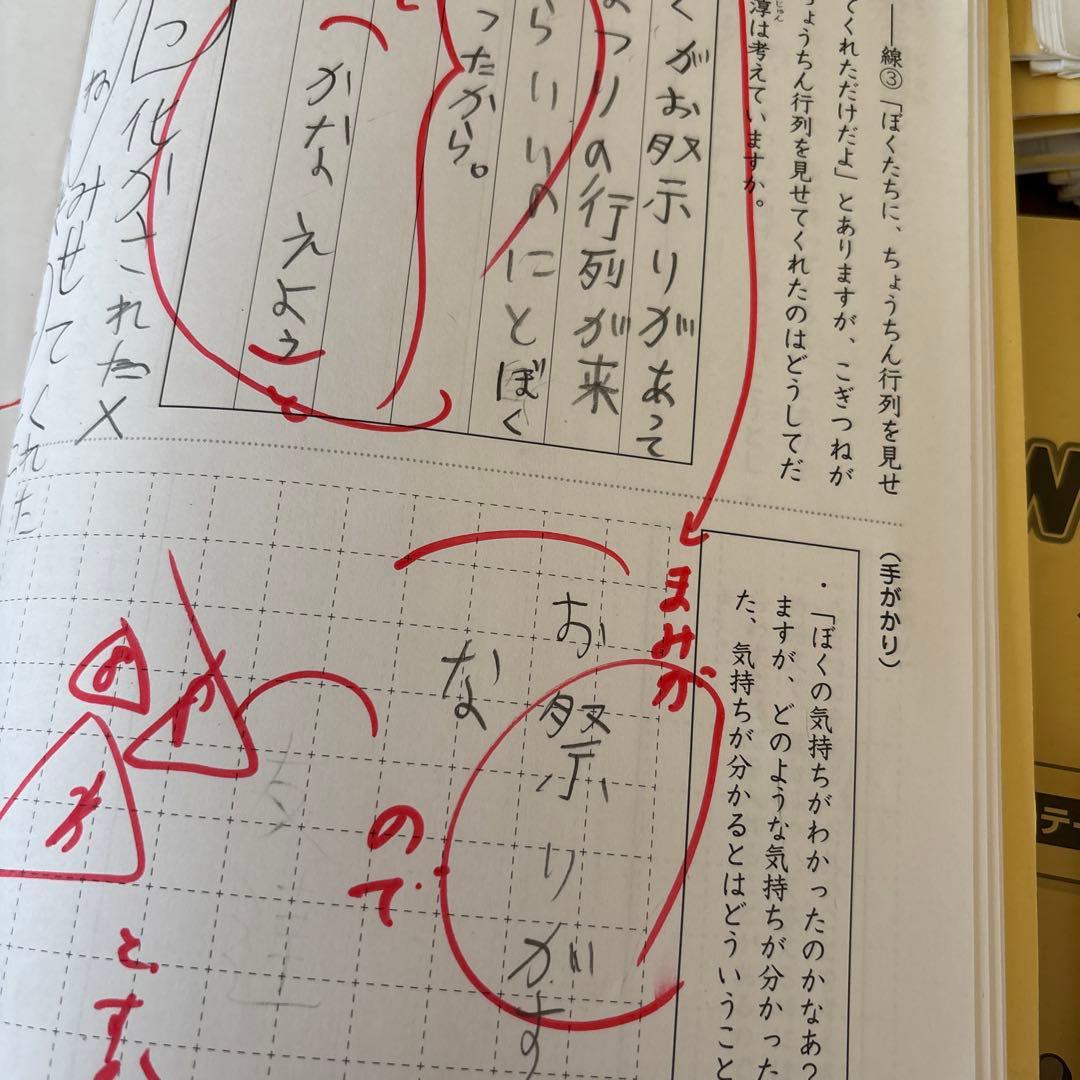 ――線③「ぼくたちに、ちょうちん行列を見せ
てくれただけだよ」とありますが、こぎつねが
ちょうちん行列を見せてくれたのはどうしてだ
淳は考えていますか。
じゅん
くがお祭りがあって
まつりの行列が来
らいいのにとぼく
ったから。
かなえよう
化かされた
みせてくれた
(手がかり)
・「ぼくの気持ちがわかったのかなあ?
ますが、どのような気持ちが分かった
た、気持ちが分かるとはどういうこと
まみが
お祭りがす
な
ので
とす
テー